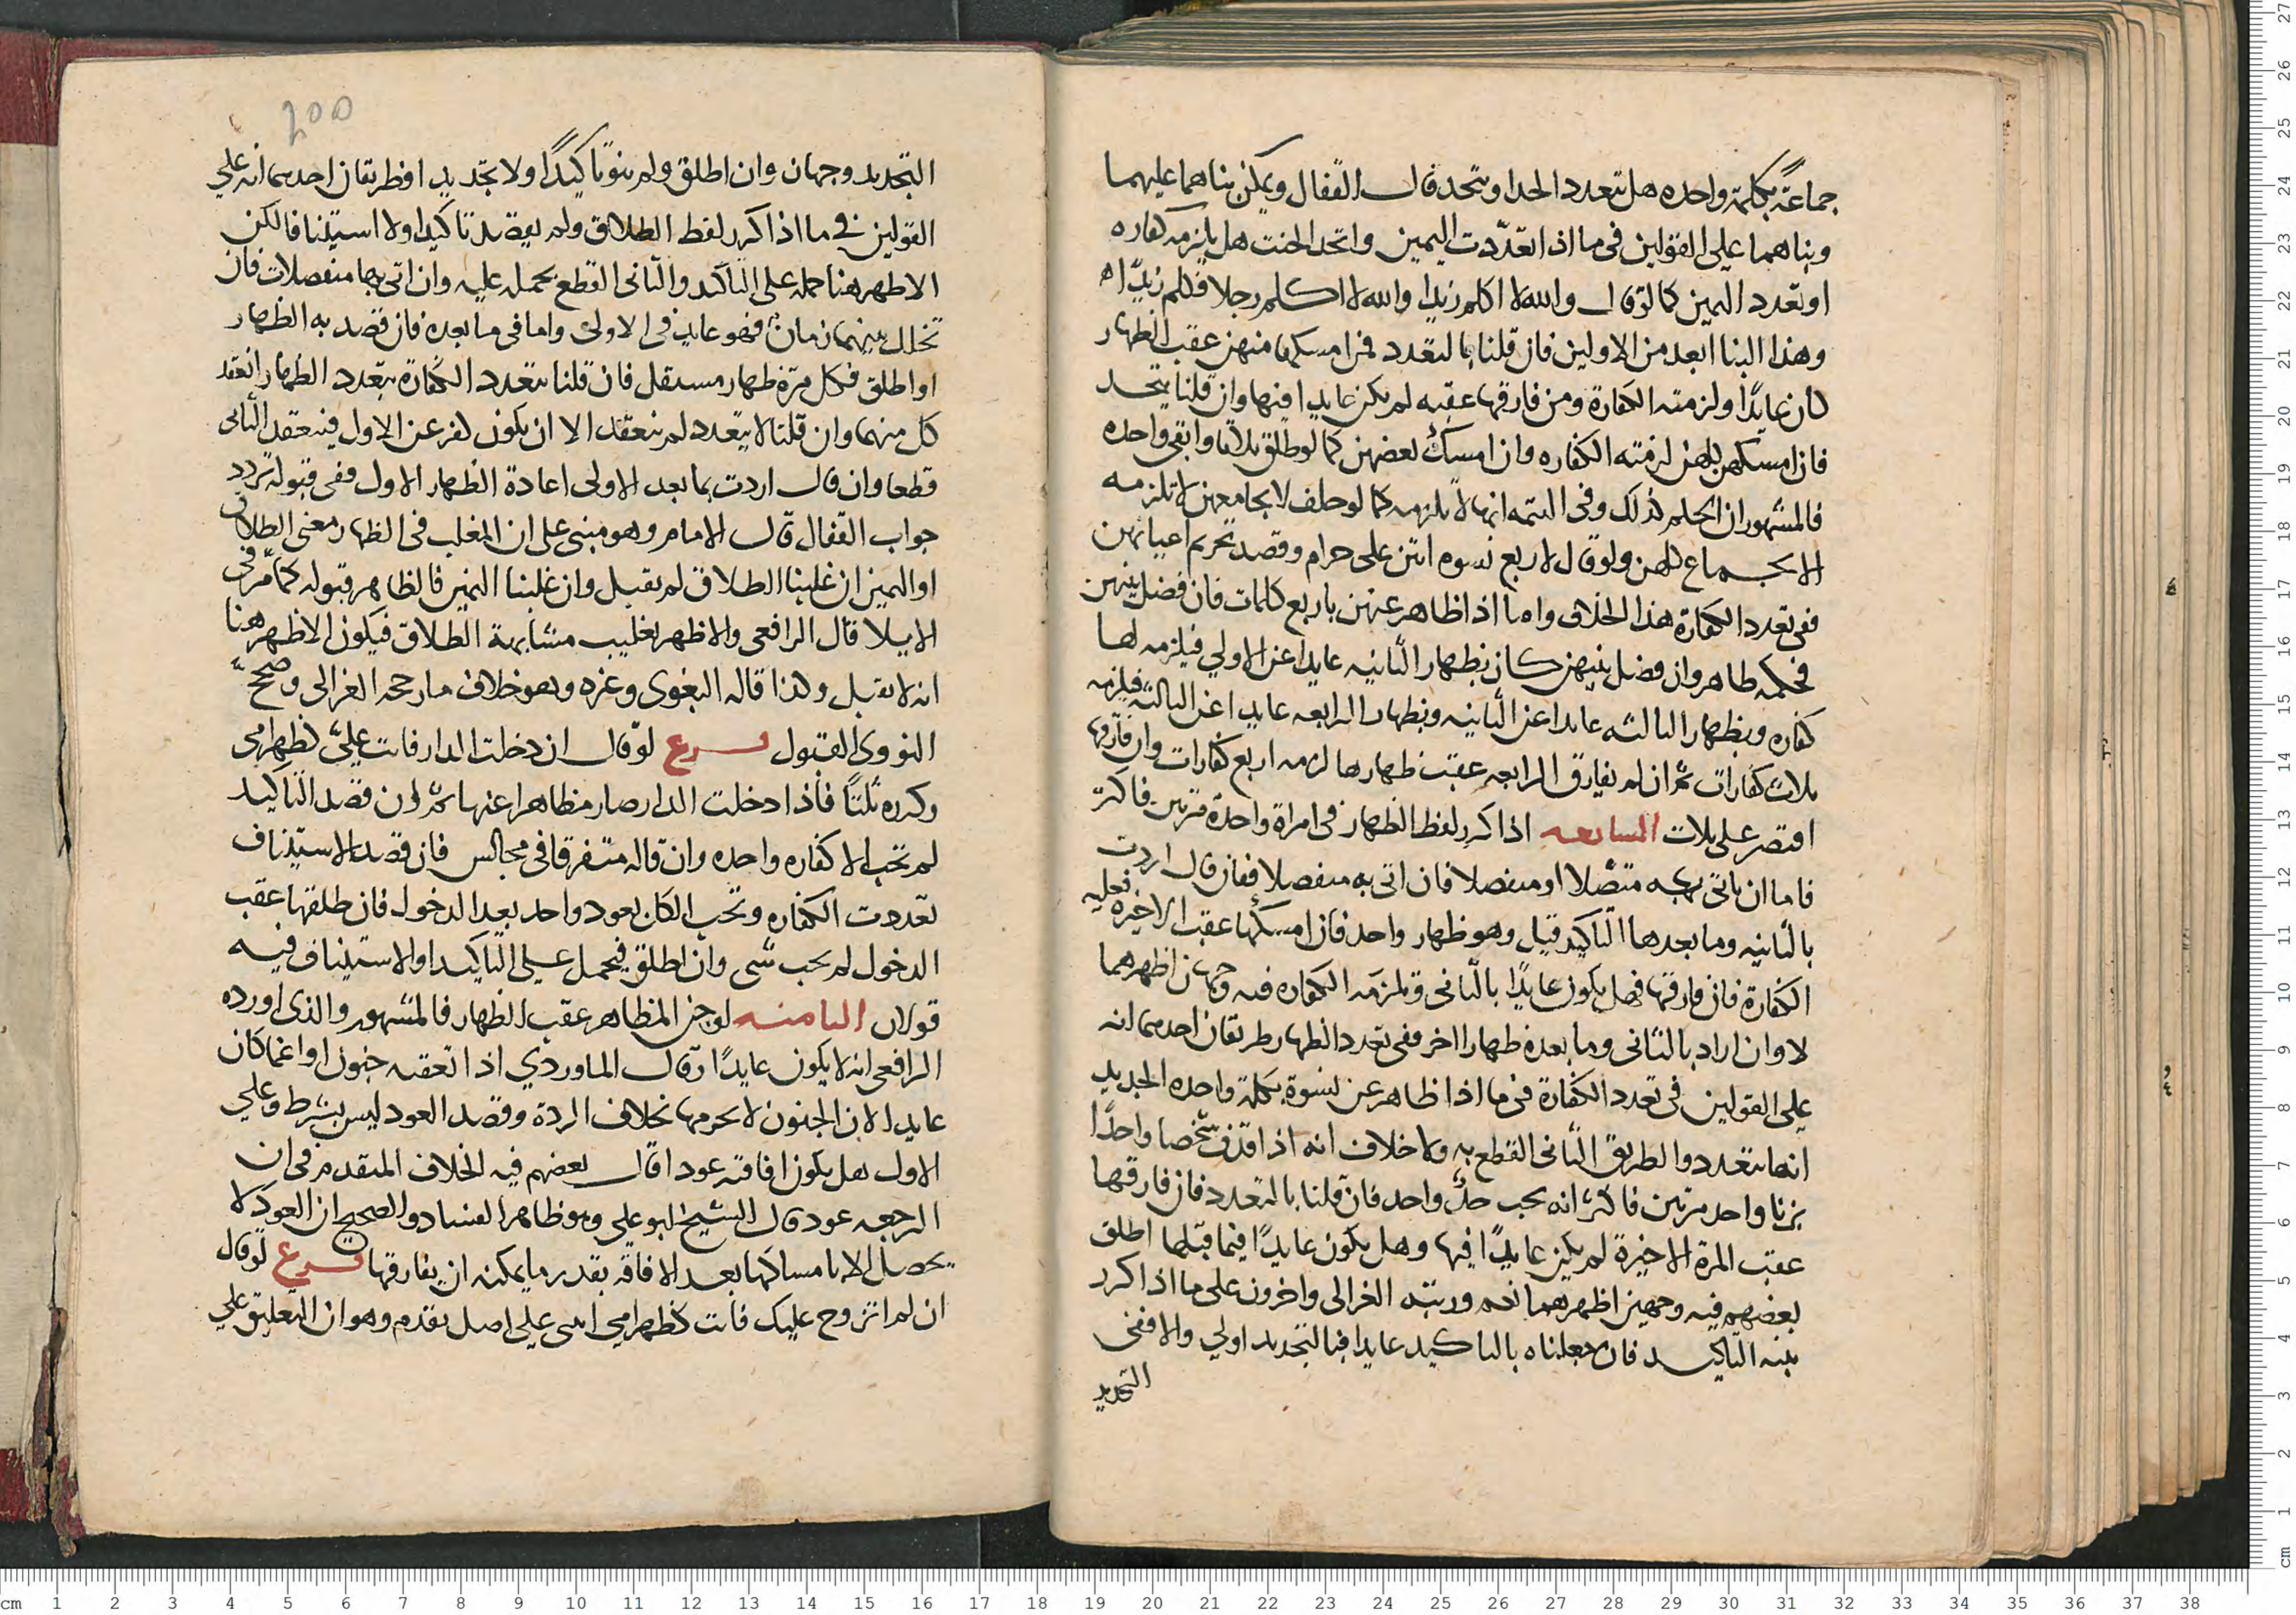 جماعة بكلمة واحده هل تعدد الحد او يتحد قال القفال ويمكن بناهما عليهما
وبناهما على القولين فى ما اذا تعدّدت اليمين واتحد الحنث هل يلزمه كفاره
او تعدد اليمين كما لو قال والله لا اكلم زيدا والله لا اكلم رجلا فكلم زيدًا
وهذا البنا ابعد من الاولين فان قلنا بالتعدد فمن امسكها منهن عقب الظهار
كان عايدًا ولزمته الكفارة ومن فارقها عقبه لم يكن عايدا فيها وان قلنا يتحد
فان امسكهن كلهن لزمته الكفاره وان امسك بعضهن كما لو طلق ثلاثا وابقى واحده
فالمشهور ان الحكم كذلك وفى التتمه انها لا تلزمه كما لو حلف لا يجامعهن لا تلزمه
الا بجماع كلهن ولو قال لاربع نسوه انتن على حرام وقصد تحريم اعيانهن
ففى تعدد الكفارة هذا الخلاف واما اذا ظاهر عنهن باربع كلمات فان فصل بينهن
فحكمه ظاهر وان فصل بينهن كان بظهار الثانيه عايدا عن الاولي فيلزمه لها
كفاره وبظهار الثالثه عايدا عن الثانيه وبظهار الرابعه عايدا عن الثالثه فيلزمه
ثلاث كفارات ثم ان لم يفارق الرابعه عقب ظهارها لزمه اربع كفارات وان فارقها
اقتصر على ثلاث السابعه اذا كرر لفظ الظهار فى امراة واحدة مرتين فاكثر
فاما ان ياتى به متصلا او منفصلا فان اتى به منفصلا فقان قال اردت
بالثانيه وما بعدها التاكيد قبل وهو ظهار واحد فان امسكها عقب الاخيره فعليه
الكفارة فان فارقها فهل يكون عايدًا بالثانى وتلزمه الكفاره فيه وجهان اظهرهما
لا وان اراد بالثانى وما بعده ظهارا اخر ففى تعدد الظهار طريقان احدهما انه
على القولين فى تعدد الكفارة فى ما اذا ظاهر عن نسوة بكلمة واحده الجديد
انها تتعدد والطريق الثانى القطع به ولا خلاف انه اذا قذف شخصا واحدًا
بزنا واحد مرتين فاكثر انه يجب حدٌّ واحد فان قلنا بالتعدد فان فارقها
عقب المرة الاخيرة لم يكن عايدًا فيها وهل يكون عايدًا فيما قبلها اطلق
بعضهم فيه وجهين اظهرهما نعم ورتبه الغزالى واخرون على ما اذا كرر
بنيه التاكيد فان جعلناه بالتاكيد عايدا فبالتجديد اولي والا ففى
التجديد
٢٥٥
التجديد وجهان وان اطلق ولم ينو تاكيدًا ولا تجديدا فطريقان احدهما انه علي
القولين في ما اذا كرر لفظ الطلاق ولم يقصد تاكيدا ولا استينافا لكن
الاظهر هنا حمله على التاكيد والثانى القطع بحمله عليه وان اتى بهما منفصلات فان
تخلل بينهما زمان فهو عايد فى الاولى واما فى ما بعده فان قصد به الظهار
او اطلق فكل مرّة ظهار مستقل فان قلنا تتعدد الكفارة بتعدد الظهار انعقد
كل منهما وان قلنا لا يتعدد لم ينعقد الا ان يكون كفر عن الاول فينعقد الثانى
قطعا وان قال اردت بما بعد الاولى اعادة الظهار الاول ففى قبوله تردد
جواب القفال قال الامام وهو مبنى على ان المغلب فى الظهار معنى الطلاق
او اليمين ان غلبنا الطلاق لم يقبل وان غلبنا اليمين فالظاهر قبوله كما مر فى
الايلا قال الرافعى والاظهر تغليب مشابهة الطلاق فيكون الاظهر هنا
انه لا يقبل وكذا قاله البغوى وغيره وهو خلاف ما رجحه الغزالى وصححه
النووى القبول فرع لو قال ان دخلت الدار فانت عليّ كظهر امى
وكرره ثلثًا فاذا دخلت الدار صار مظاهرا عنها ثم ان قصد التاكيد
لم تجب الا كفاره واحده وان قاله متفرقا فى مجالس فان قصد الاستيناف
تعددت الكفاره وتجب الكل بعود واحد بعد الدخول فان طلقها عقب
الدخول لم يجب شى وان اطلق فيحمل على التاكيد او الاستيناف فيه
قولان الثامنه لو جن المظاهر عقب الظهار فالمشهور والذى اورده
الرافعى انه لا يكون عايدًا وقال الماوردي اذا تعقبه جنون او اغما كان
عايدا لان الجنون لا يحرمها بخلاف الردة وقصد العود ليس بشرط وعلي
الاول هل يكون افاقته عودا قال بعضهم فيه الخلاف المتقدم فى ان
الرجعه عود قال الشيخ ابو علي وهو ظاهر الفساد والصحيح ان العود لا
يحصل الا بامساكها بعد الافاقه بقدر ما يمكنه ان يفارقها فرع لو قال
ان لم اتزوج عليك فانت كظهر امي انبنى علي اصل تقدم وهو ان التعليق علي